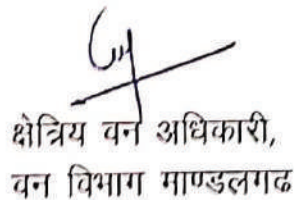 क्षेत्रिय वन अधिकारी,
वन विभाग माण्डलगढ